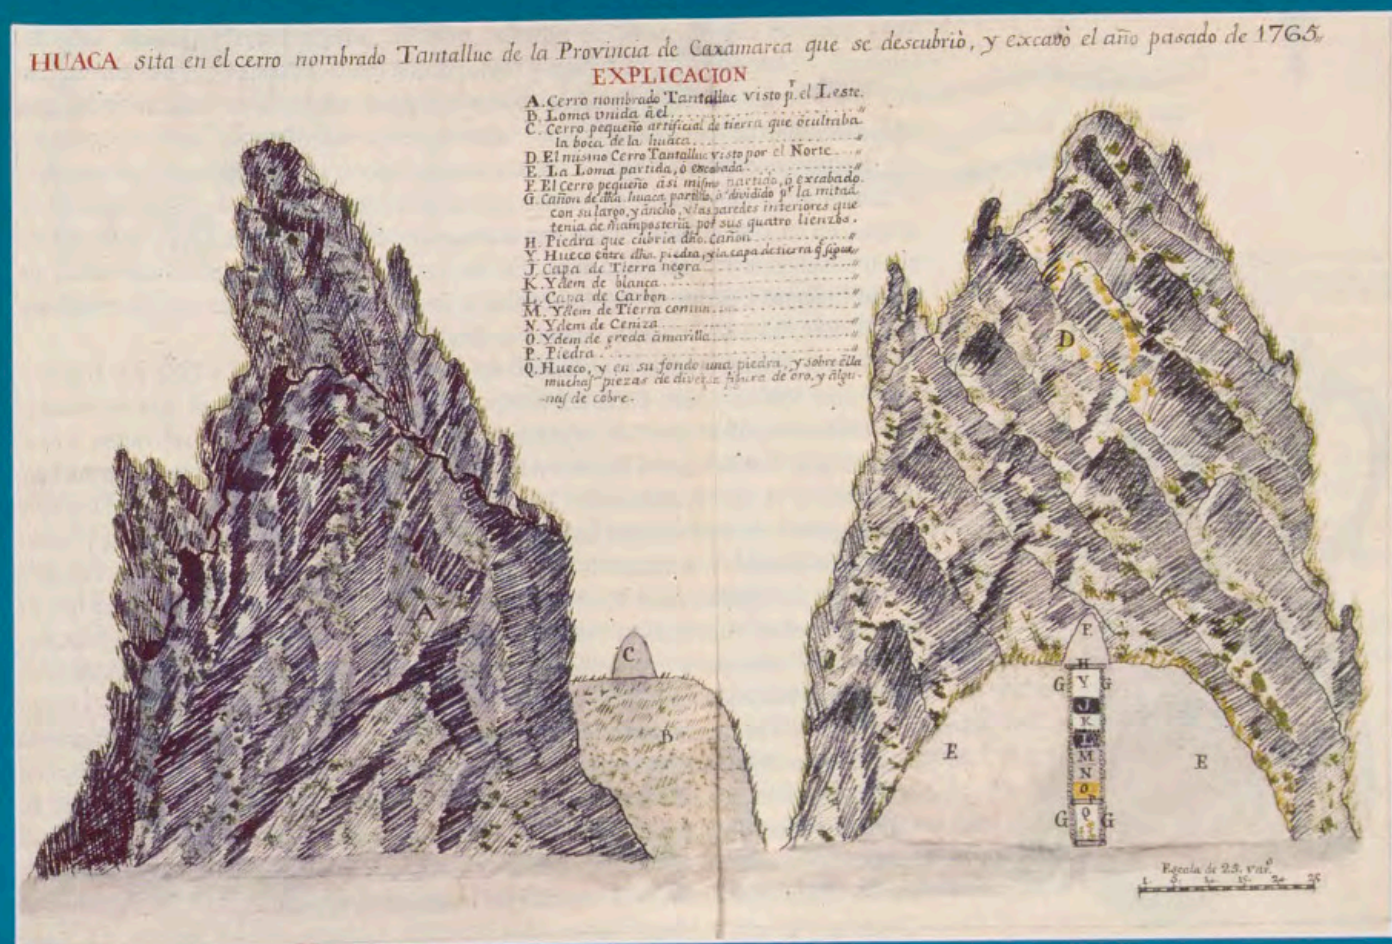 HUACA sita en el cerro nombrado Tantalluc de la Provincia de Caxamarca que se descubriò, y excavò el año pasado de 1765„
EXPLICACION
A. Cerro nombrado Tantalluc visto p.r el Leste.
B. Loma unida ã el
C. Cerro pequeño artificial de tierra que ocultaba
la boca de la huaca
D. El mismo Cerro Tantalluc visto por el Norte
E. La Loma partida, ò excabada
F. El Cerro pequeño ãsi mismo partido, ò excabado.
G. Cañon de dha. huaca partido, ò dividido p.r la mitad
con su largo, y ãncho, y las paredes interiores que
tenia de mamposteria por sus quatro lienzos.
H. Piedra que cubria dho. cañon
Y. Hueco entre dha. piedra, y la capa de tierra q.e sigue
J. Capa de Tierra negra
K. Ydem de blanca
L. Capa de Carbon
M. Ydem de Tierra comun
N. Ydem de Ceniza
O. Ydem de greda ãmarilla
P. Piedra
Q. Hueco, y en su fondo una piedra, y sobre ēlla
muchas piezas de diversa figura de oro, y ãlgu-
-nas de cobre.
A
B
C
D
E
E
F.
H
G
Y
G
J
K
L
M
N
O
P
G
Q
G
Escala de 25. var.s
1. 5. 10. 15. 20 25